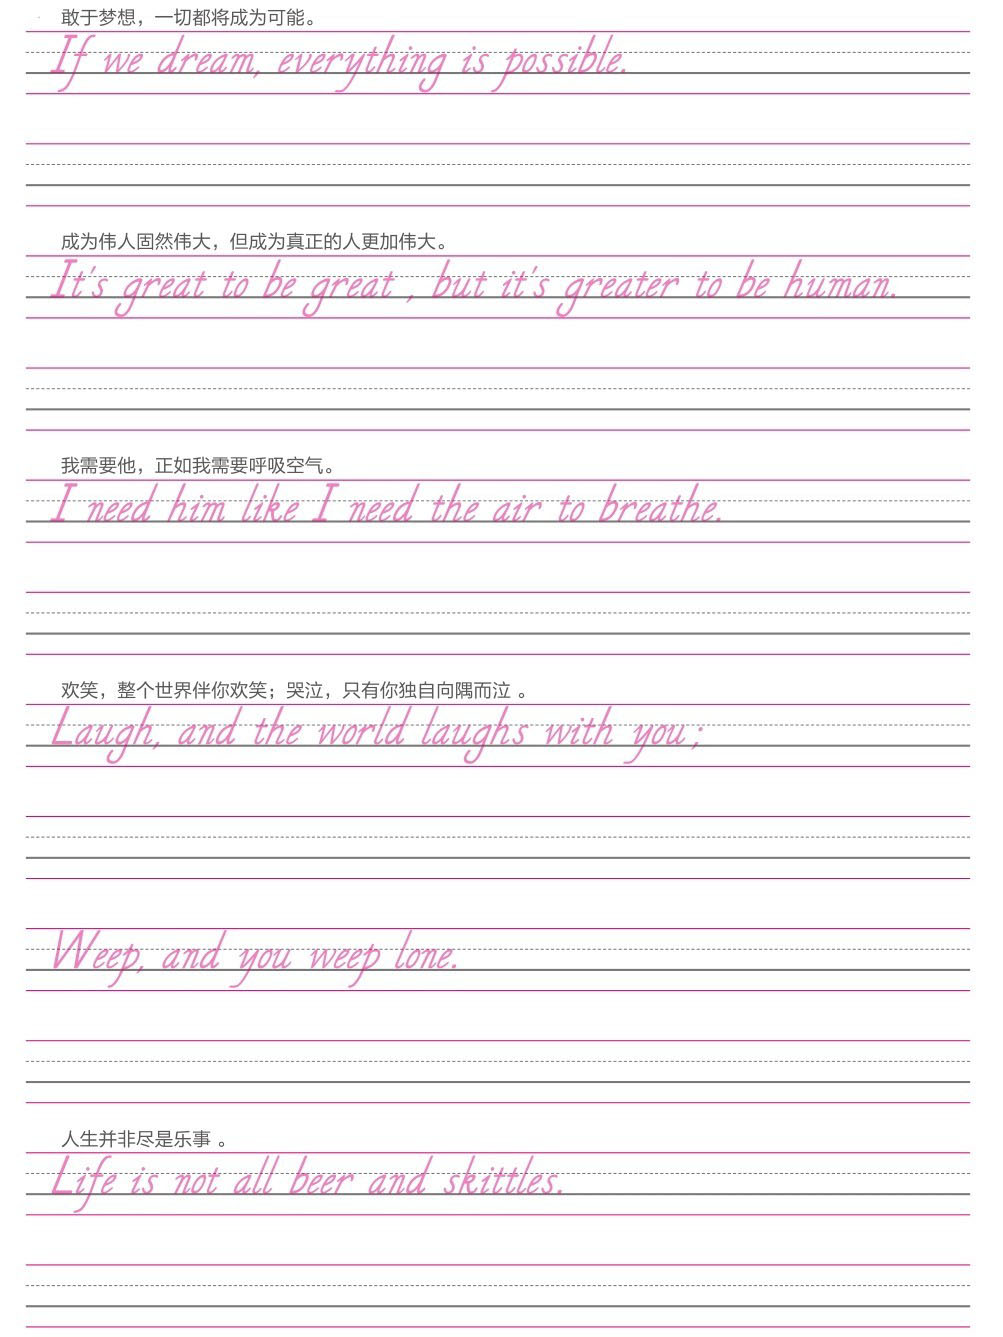 敢于梦想，一切都将成为可能。
If we dream, everything is possible.
成为伟人固然伟大，但成为真正的人更加伟大。
It's great to be great , but it's greater to be human.
我需要他，正如我需要呼吸空气。
I need him like I need the air to breathe.
欢笑，整个世界伴你欢笑；哭泣，只有你独自向隅而泣 。
Laugh, and the world laughs with you ;
Weep, and you weep lone.
人生并非尽是乐事 。
Life is not all beer and skittles.